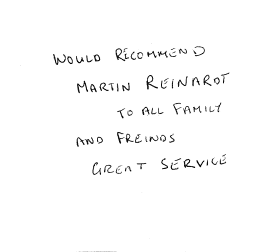 WOULD RECOMMEND
MARTIN REINARDT
TO ALL FAMILY
AND FREINDS
GREAT SERVICE